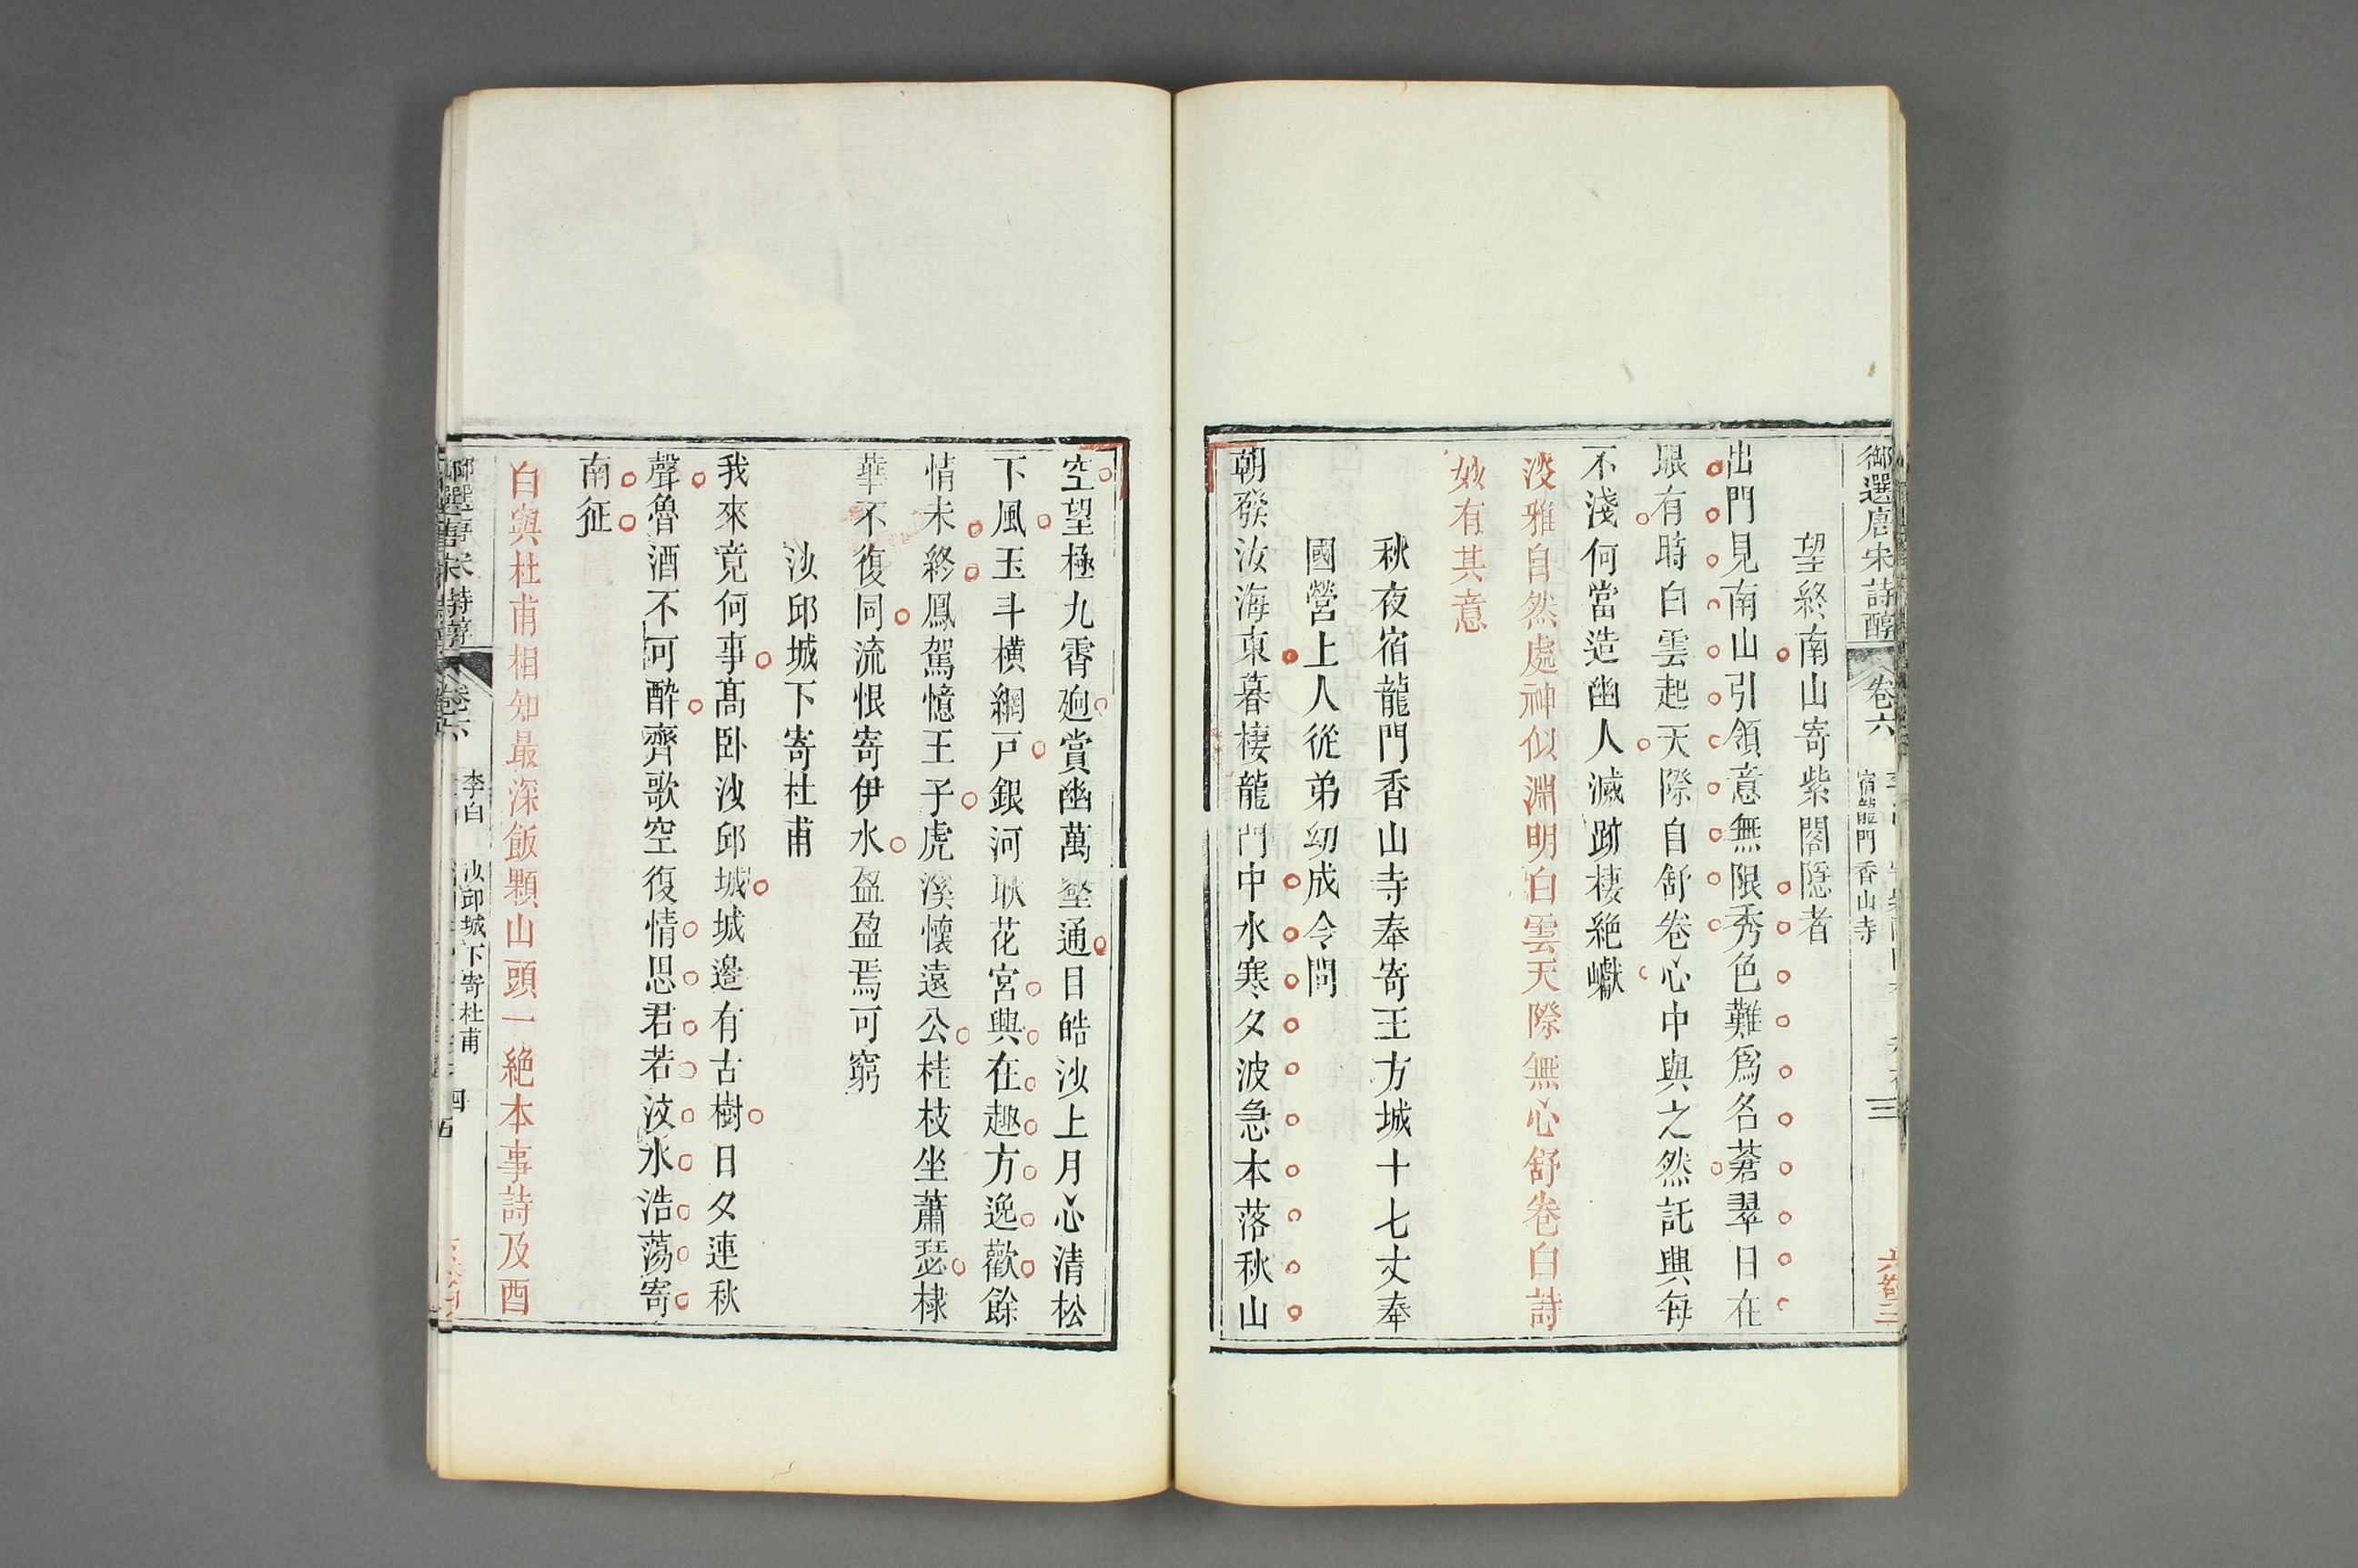 御選唐宋詩醇
卷六
宿龍門香山寺
三
六卷三
望終南山寄紫閣隱者
出門見南山引領意無限秀色難爲名蒼翠日在
眼有時白雲起天際自舒卷心中與之然託興每
不淺何當造幽人滅跡棲絶巘
淡雅自然處神似淵明白雲天際無心舒卷白詩
妙有其意
秋夜宿龍門香山寺奉寄王方城十七丈奉
國營上人從弟幼成令問
朝發汝海東暮棲龍門中水寒夕波急木落秋山
空望極九霄廻賞幽萬壑通目皓沙上月心清松
下風玉斗横網戸銀河耿花宮興在趣方逸歡餘
情未終鳳駕憶王子虎溪懷遠公桂枝坐蕭瑟棣
華不復同流恨寄伊水盈盈焉可窮
沙邱城下寄杜甫
我來竟何事髙卧沙邱城城邉有古樹日夕連秋
聲魯酒不可醉齊歌空復情思君若汶水浩蕩寄
南征
白與杜甫相知最深飯顆山頭一絶本事詩及酉
御選唐宋詩醇
卷六
李白
沙邱城下寄杜甫
四